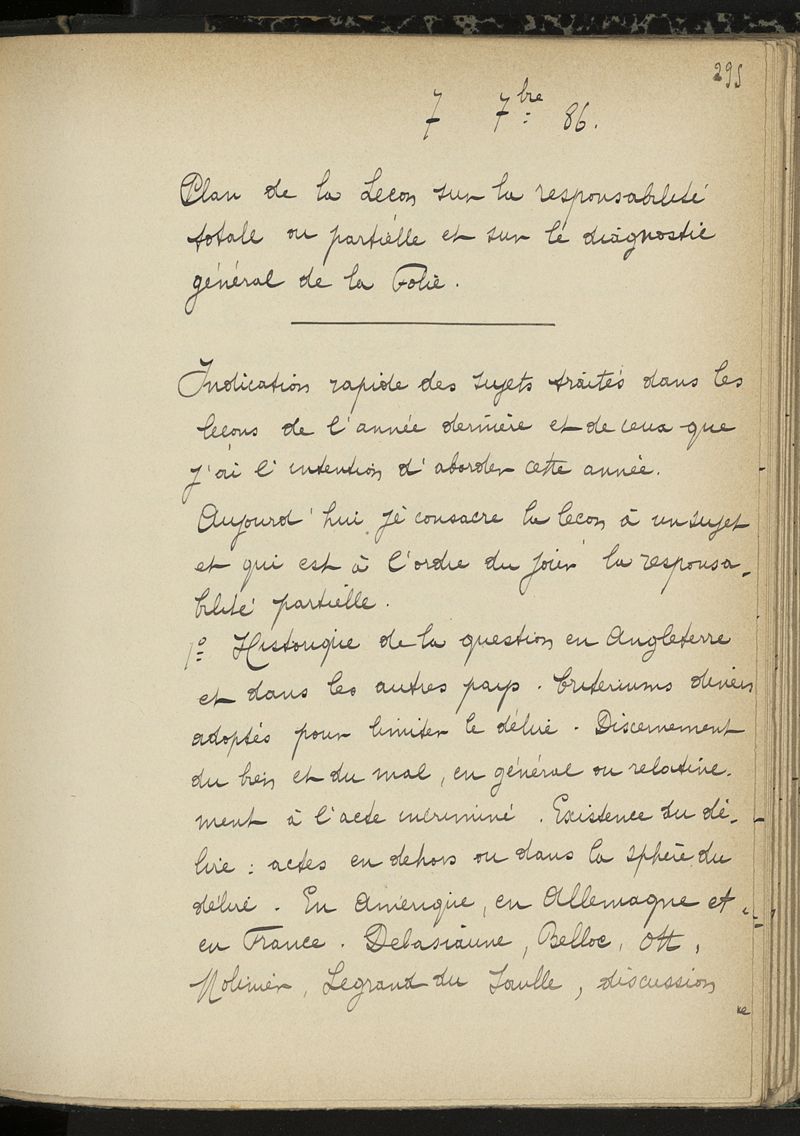 295
7 7bre 86.
Plan de la Leçon sur la responsabilité
totale ou partielle et sur le diagnostic
général de la Folie.
Indication rapide des sujets traités dans les
leçons de l'année dernière et de ceux que
j'ai l'intention d'aborder cette année.
Aujourd'hui je consacre la leçon à un sujet
et qui est à l'ordre du jour la responsa-
bilité partielle.
1o Historique de la question en Angleterre
et dans les autres pays. Criteriums divers
adoptés pour limiter le délire. Discernement
du bien et du mal, en général ou relative-
ment à l'acte incriminé. Existence du dé-
lire : actes en dehors ou dans la sphère du
délire. En Amérique, en Allemagne et
en France. Delasiauve, Belloc, Ott,
Molinier, Legrand du Saulle, discussion